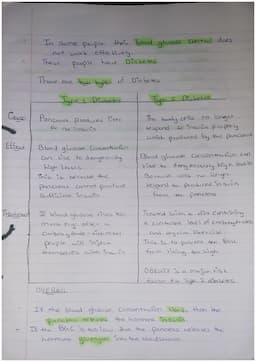 In some people their blood glucose control does
not work effectively.
These people have Diabetes
There are two types of Diabetes
Type 1 Diabetes
Type 2 Diabetes
Cause
Pancreas produces little
to no insulin
The body cells no longer
respond to insulin properly
which produced by the pancreas
Effect
Blood glucose concentration
can rise to dangerously
high levels
This is because the
pancreas cannot produce
sufficient insulin
Blood glucose concentration can
rise to dangerously high levels
Because cells no longer
respond to produced insulin
from the pancreas
Treatment
If blood glucose rises too
much e.g. after a
carbohydrate meal
people will inject
themselves with insulin
Treated with a diet containing
a controlled level of carbohydrates
and regular exercise
This is to prevent the
rising too high
Obesity is a major risk
factor to type 2 diabetes
OVERALL
- If the blood glucose concentration rises, then the
pancreas releases the hormone insulin
- If the BGC is too low then the pancreas releases the
hormone glucagon into the bloodstream